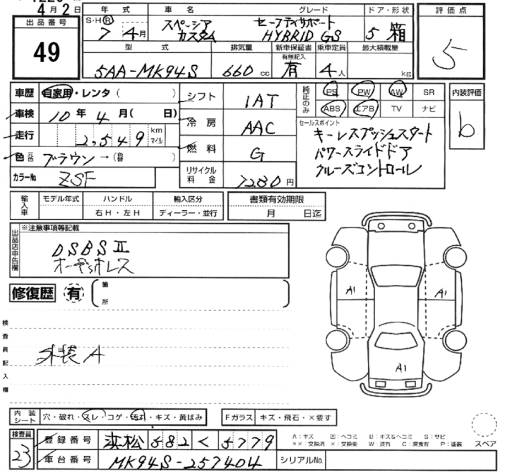 月2日
出品番号 年式 車名 グレード ドア・形状 評価点
49 S・H・R 7年4月 スペーシア カスタム セーフティサポート HYBRID GS 5 箱 5
型式 排気量 新車保証書 有無記入 乗車定員 最大積載量
5AA-MK94S 660cc 有 4人 kg
車歴 自家用・レンタ( ) シフト 1AT 純正のみ PS PW AW SR 内装評価
車検 10年4月( 日) 冷房 AAC ABS エアB TV ナビ b
走行 2,549 km マイル セールスポイント
色 ブラウン→( ) 燃料 G キーレスプッシュスタート
カラーNo ZSF リサイクル料金 7280円 パワースライドドア
クルーズコントロール
輸入車 モデル年式 ハンドル 輸入区分 書類有効期限
年 右H・左H ディーラー・並行 月 日迄
出品店申告欄 ※注意事項等記載
DSBSⅡ
オーディオレス
修復歴 有 箇所
検査員記入欄
外装A
A1 A1
A1
内装シート 穴・破れ・スレ・コゲ・汚れ・キズ・黄ばみ Fガラス キズ・飛石・×要す
検査員 登録番号 浜松 582 く 5779 スペア
23 車台番号 MK94S-257404 シリアルNo.